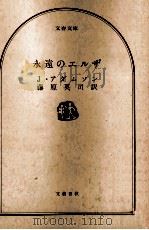 文春文庫
永遠のエルザ
J・アダムソン
藤原英司訳
文藝春秋